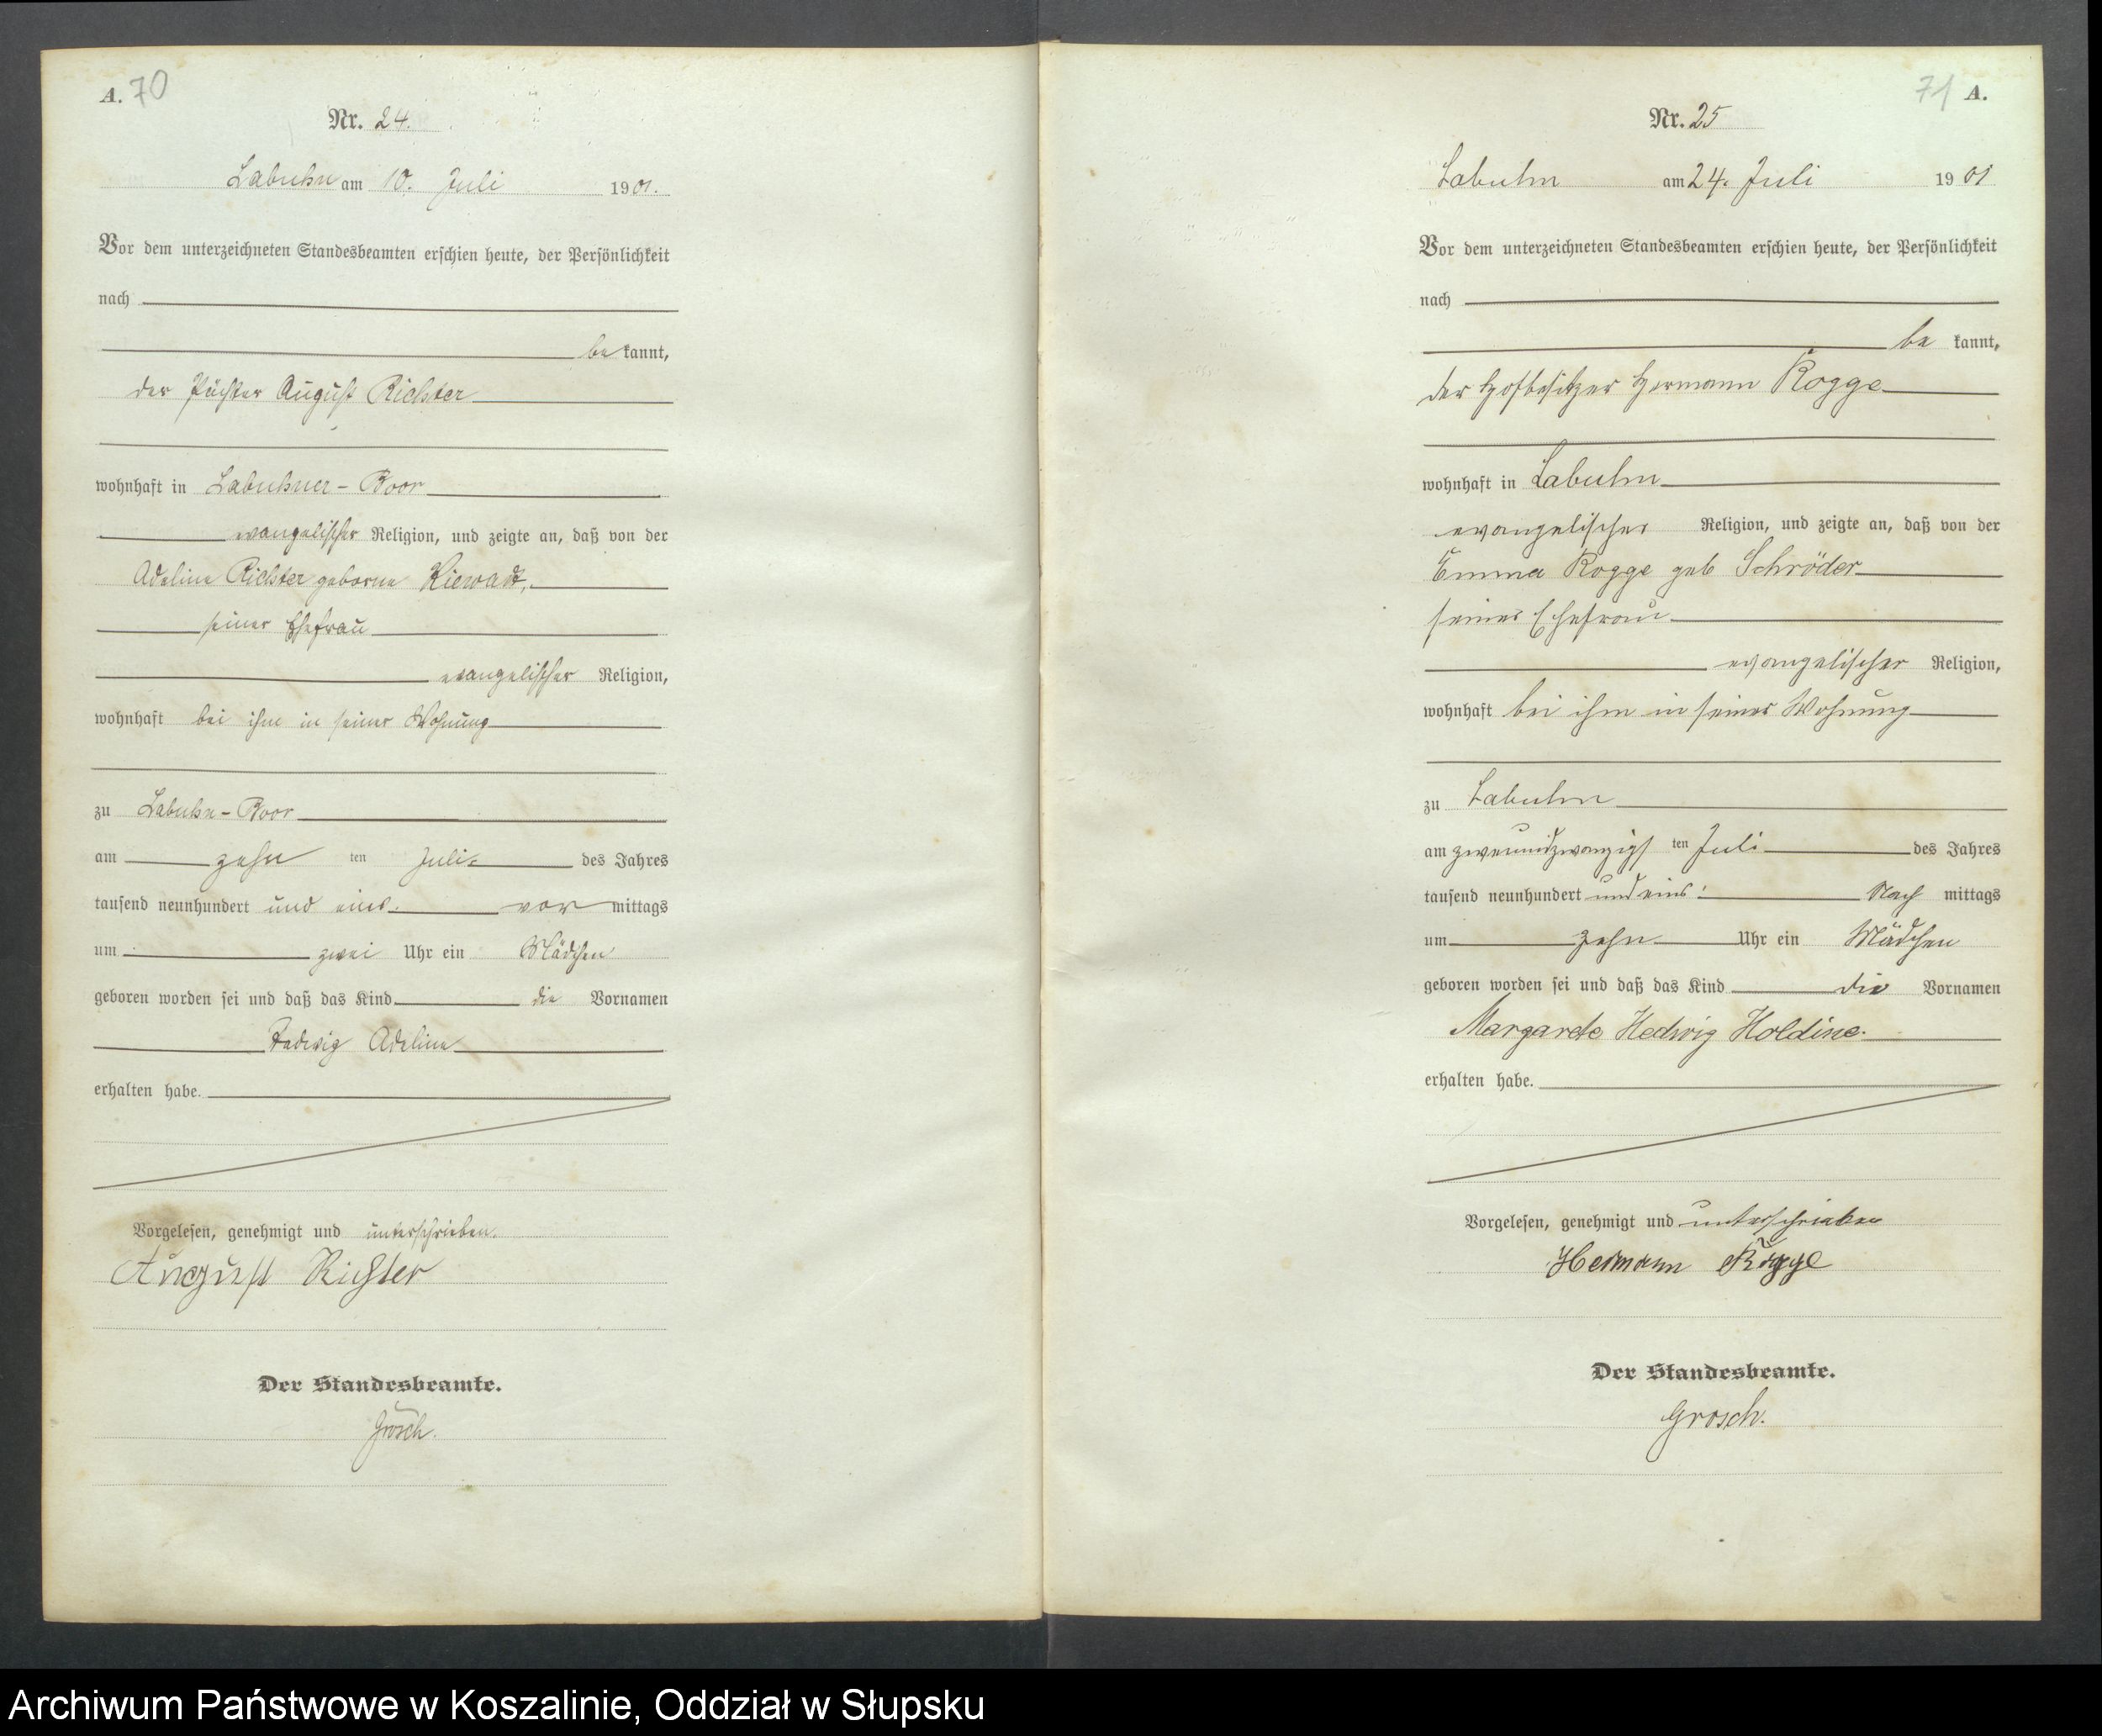 A. 70
Nr. 24.
Labuhn am 10. Juli 1901.
Vor dem unterzeichneten Standesbeamten erschien heute, der Persönlichkeit
nach
be kannt,
der Pächter August Richter
wohnhaft in Labuhner-Boor
evangelischer Religion, und zeigte an, daß von der
Adeline Richter geborne
seiner Ehefrau
evangelischer Religion,
wohnhaft bei ihm in seiner Wohnung
zu Labuhn-Boor
am zehn ten Juli des Jahres
tausend neunhundert und eins. vor mittags
um zwei Uhr ein Mädchen
geboren worden sei und daß das Kind die Vornamen
Hedwig Adeline
erhalten habe.
Vorgelesen, genehmigt und unterschrieben.
August Richter
Der Standesbeamte.
Grosch.
71 A.
Nr. 25
Labuhn am 24. Juli 1901
Vor dem unterzeichneten Standesbeamten erschien heute, der Persönlichkeit
nach
be kannt,
der Hofbesitzer Hermann Rogge
wohnhaft in Labuhn
evangelischer Religion, und zeigte an, daß von der
Emma Rogge geb Schröder
seiner Ehefrau
evangelischer Religion,
wohnhaft bei ihm in seiner Wohnung
zu Labuhn
am zweiundzwanzigs ten Juli des Jahres
tausend neunhundert und eins. Nach mittags
um zehn Uhr ein Mädchen
geboren worden sei und daß das Kind die Vornamen
Margarete Hedwig Holdine
erhalten habe.
Vorgelesen, genehmigt und unterschrieben
Hermann Rogge
Der Standesbeamte.
Grosch.
Archiwum Państwowe w Koszalinie, Oddział w Słupsku